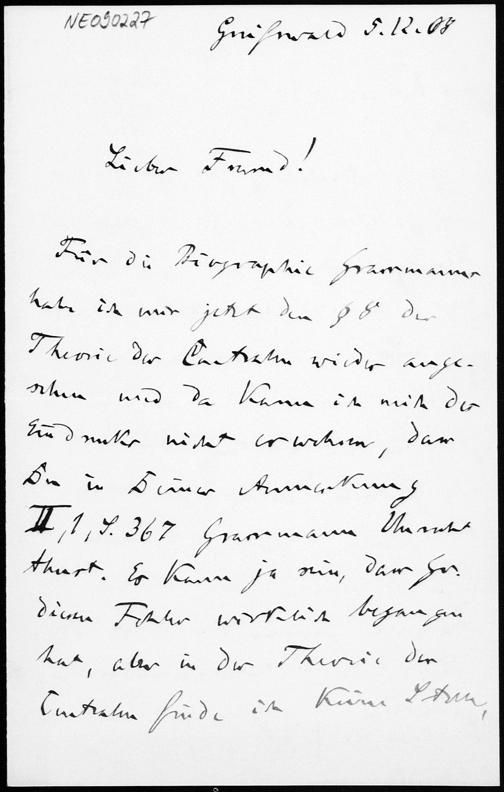 NE090227
Greifswald 5.12.08
Lieber Freund!
Für die Biographie Grassmanns
habe ich mir jetzt den § 8 der
Theorie der Centralen wieder ange-
sehen und da kann ich mich des
Eindrucks nicht erwehren, dass
Du in Deiner Anmerkung
II,1, S. 367 Grassmann Unrecht
thust. Es kann ja sein, dass Gr.
diesen Fehler wirklich begangen
hat, aber in der Theorie der
Centralen finde ich keine Stelle,